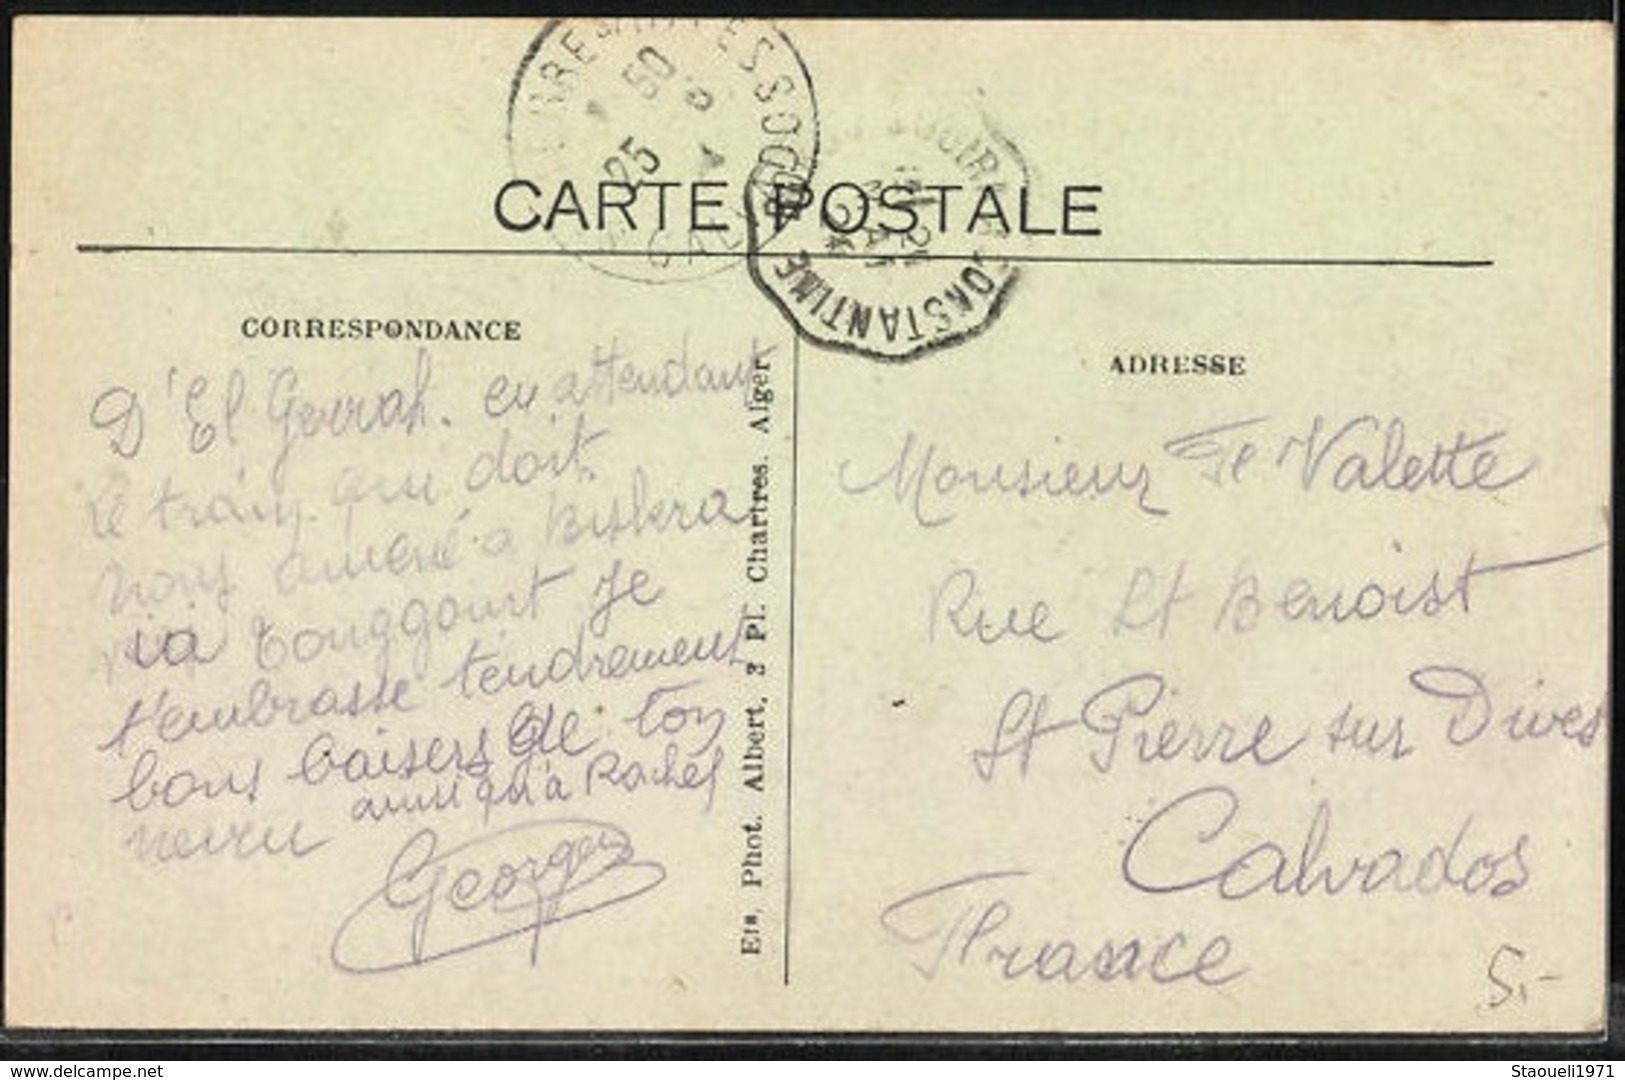 CARTE POSTALE
CONSTANTINE
25
CORRESPONDANCE
D'El Gerrah. en attendant
le train qui doit
nous amené a Biskra
via Touggourt Je
t'embrasse tendrement
bons baisers de ton
neveu ainsi qu'à Rachel
Georges
Ets. Phot. Albert, 3 Pl. Chartres. Alger
ADRESSE
Monsieur Fd Valette
Rue St Benoist
St Pierre sur Dives
Calvados
France
5,-
delcampe.net
Staoueli1971